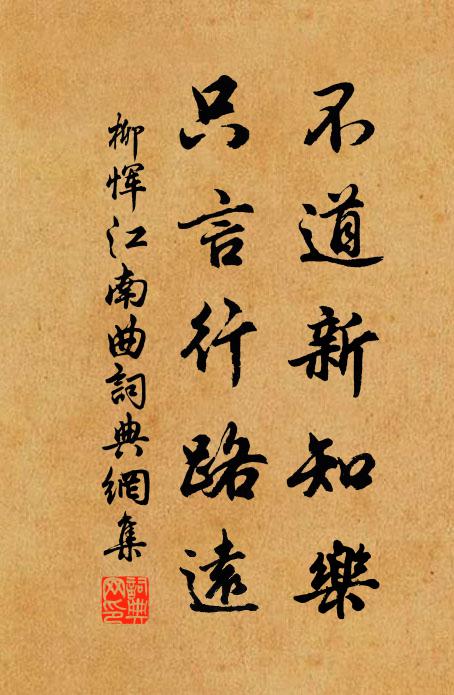 不道新知樂
只言行路遠
柳恽江南曲詞典網集
詞典網印